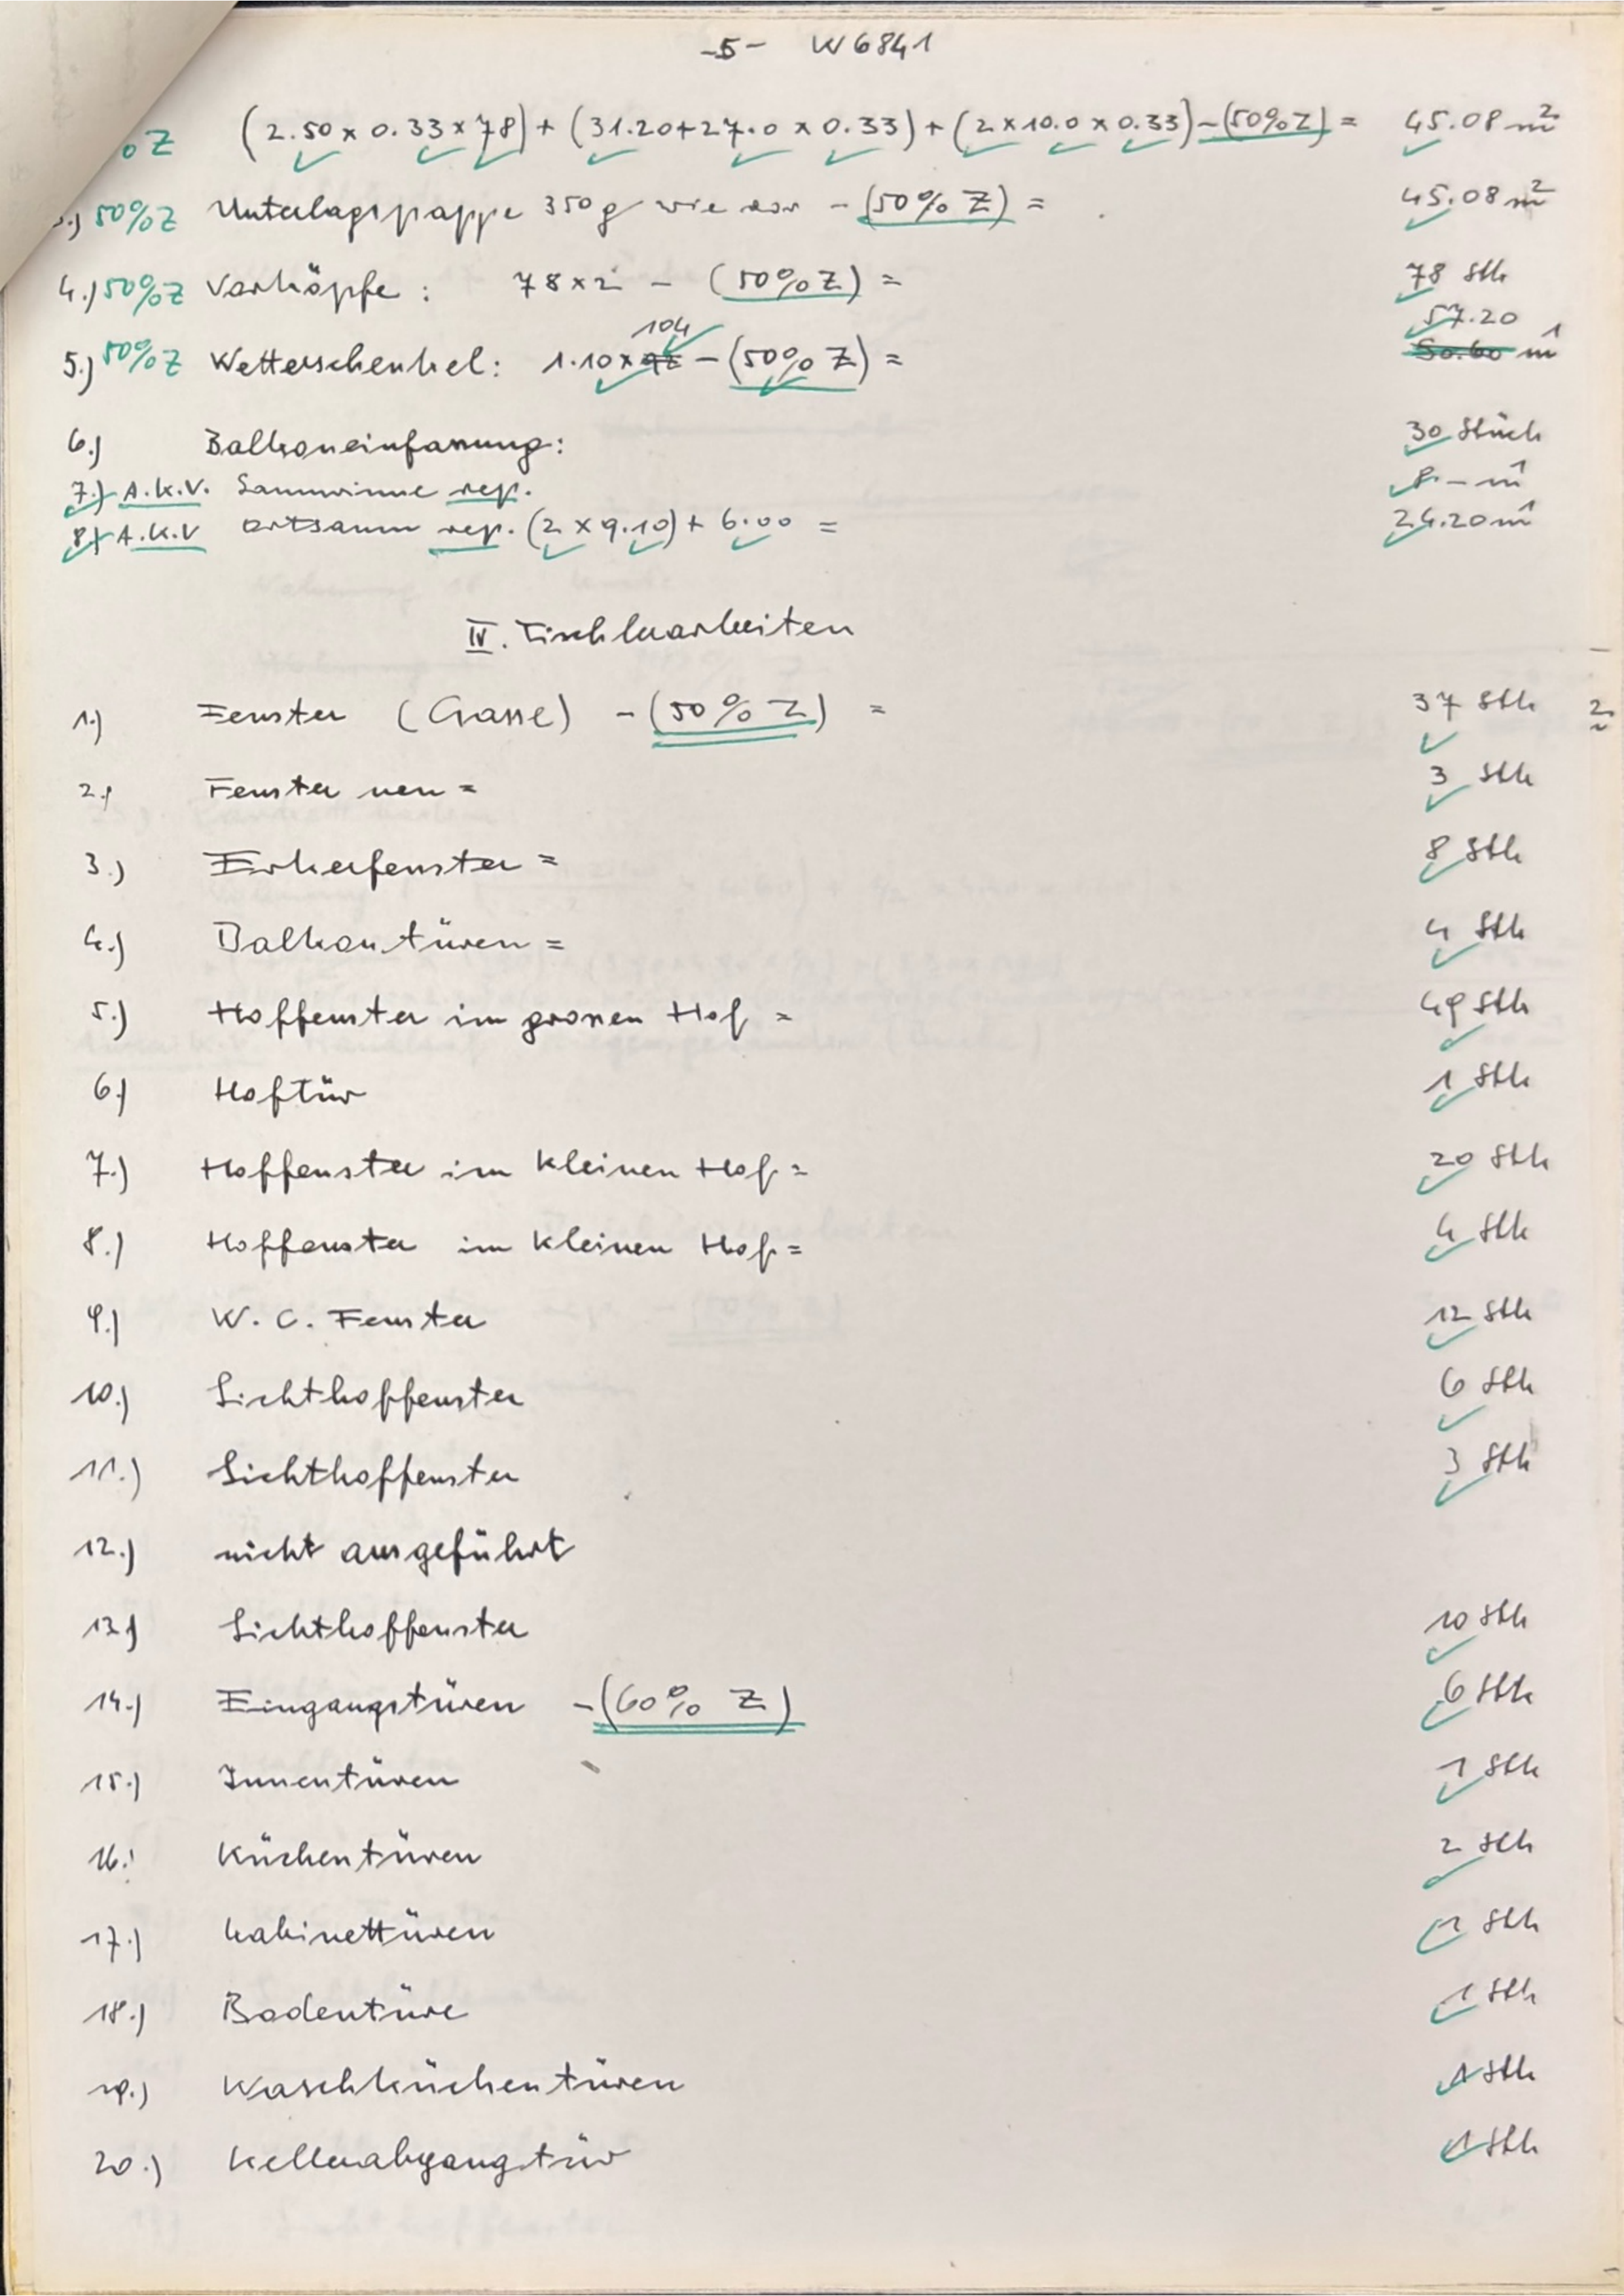 -5- W6841
%Z (2.50 x 0.33 x 78) + (31.20+27.0 x 0.33) + (2 x 10.0 x 0.33) - (50% Z) = 45.08 m²
.) 50%Z Unterlagspappe 350g wie vor - (50% Z) = 45.08 m²
4.) 50%Z Vorköpfe: 78 x 2 - (50% Z) = 78 Stk
104 57.20
5.) 50%Z Wetterschenkel: 1.10 x 92 - (50% Z) = 50.60 m¹
6.) Balkoneinfassung: 30 Stück
7.) A.K.V. Saumrinne rep. 8.- m¹
8.) A.K.V Ortsaum rep. (2 x 9.10) + 6.00 = 24.20 m¹
IV. Tischlerarbeiten
1.) Fenster (Gasse) - (50% Z) = 37 Stk 2
2.) Fenster neu = 3 Stk
3.) Erkerfenster = 8 Stk
4.) Balkontüren = 4 Stk
5.) Hoffenster im grossen Hof = 49 Stk
6.) Hoftür 1 Stk
7.) Hoffenster im kleinen Hof = 20 Stk
8.) Hoffenster im kleinen Hof = 4 Stk
9.) W. C. Fenster 12 Stk
10.) Lichthoffenster 6 Stk
11.) Lichthoffenster 3 Stk
12.) nicht ausgeführt
13.) Lichthoffenster 10 Stk
14.) Eingangstüren - (60% Z) 6 Stk
15.) Innentüren 1 Stk
16.) Küchentüren 2 Stk
17.) Kabinettüren 1 Stk
18.) Bodentüre 1 Stk
19.) Waschküchentüren 1 Stk
20.) Kellerabgangstür 1 Stk